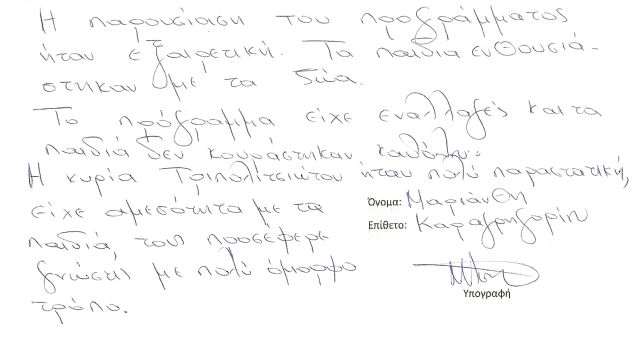 Η παρουσίαση του προγράμματος
ήταν εξαιρετική. Τα παιδιά ενθουσιά-
στηκαν με τα δώα.
Το πρόγραμμα είχε εναλλαγές και τα
παιδιά δεν κουράστηκαν καθόλου.
Η κυρία Τριπολιτσιώτου ήταν πολύ παραστατική,
είχε αμεσότητα με τα
παιδιά, τους προσέφερε
γνώσεις με πολύ όμορφο
τρόπο.
Όνομα: Μαριάνθη
Επίθετο: Καραγρηγορίου
Υπογραφή